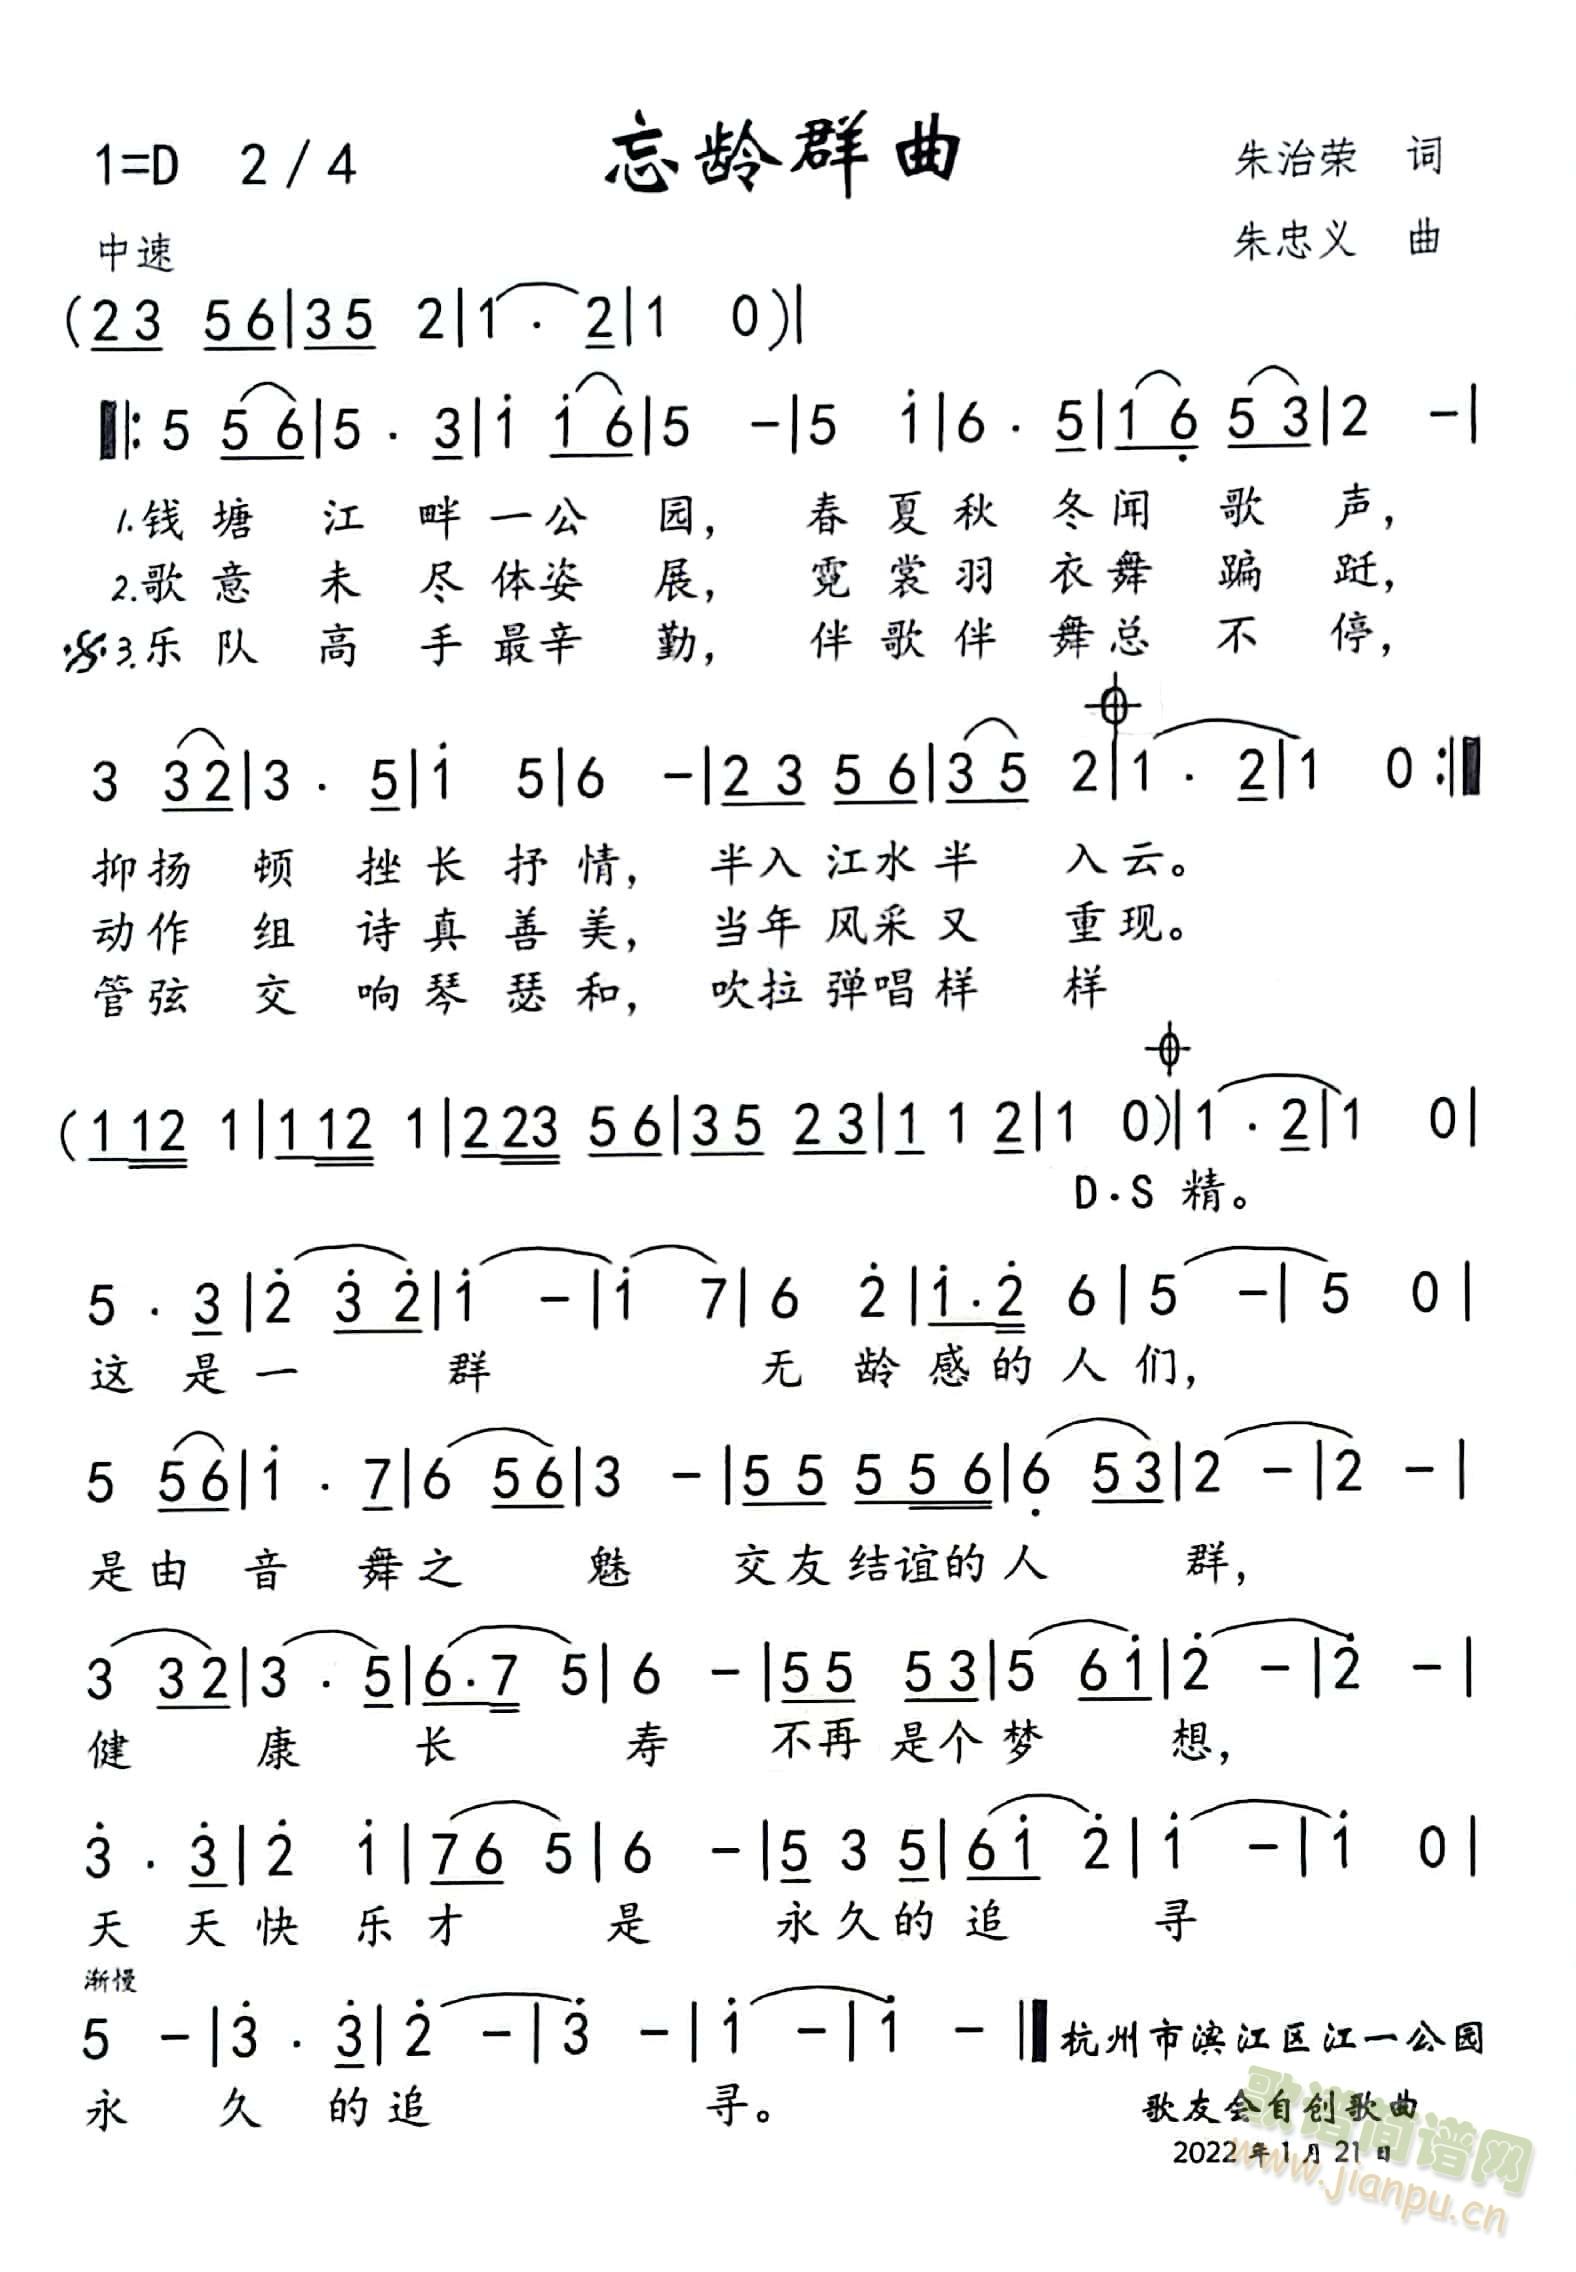 忘龄群曲
1=D 2/4
朱治荣 词
中速
朱忠义 曲
(23 56|35 2|1 . 2|1 0)|
‖: 5 56|5 . 3|i i6|5 -|5 i|6 . 5|1 6̣ 53|2 -|
1.钱塘江畔一公园，春夏秋冬闻歌声，
2.歌意未尽体姿展，霓裳羽衣舞蹁跹，
3.乐队高手最辛勤，伴歌伴舞总不停，
3 32|3 . 5|i 5|6 -|23 56|35 2|1 . 2|1 0 :‖
抑扬顿挫长抒情，半入江水半入云。
动作组诗真善美，当年风采又重现。
管弦交响琴瑟和，吹拉弹唱样样
(112 1|112 1|223 56|35 23|1 1 2|1 0)|1 . 2|1 0|
D.S 精。
5 . 3|2̇ 3̇2̇|i -|i 7|6 2̇|i.2̇ 6|5 -|5 0|
这是一群无龄感的人们，
5 56|i . 7|6 56|3 -|55 556|6̣ 53|2 -|2 -|
是由音舞之魅交友结谊的人群，
3 32|3 . 5|6.7 5|6 -|55 53|5 6i|2̇ -|2̇ -|
健康长寿不再是个梦想，
3̇ . 3̇|2̇ i|76 5|6 -|5 3 5|6i 2̇|i -|i 0|
天天快乐才是永久的追寻
渐慢
5 -|3̇ . 3̇|2̇ -|3̇ -|i -|i -‖
杭州市滨江区江一公园
永久的追寻。
歌友会自创歌曲
2022年1月21日
歌谱简谱网
www.jianpu.cn